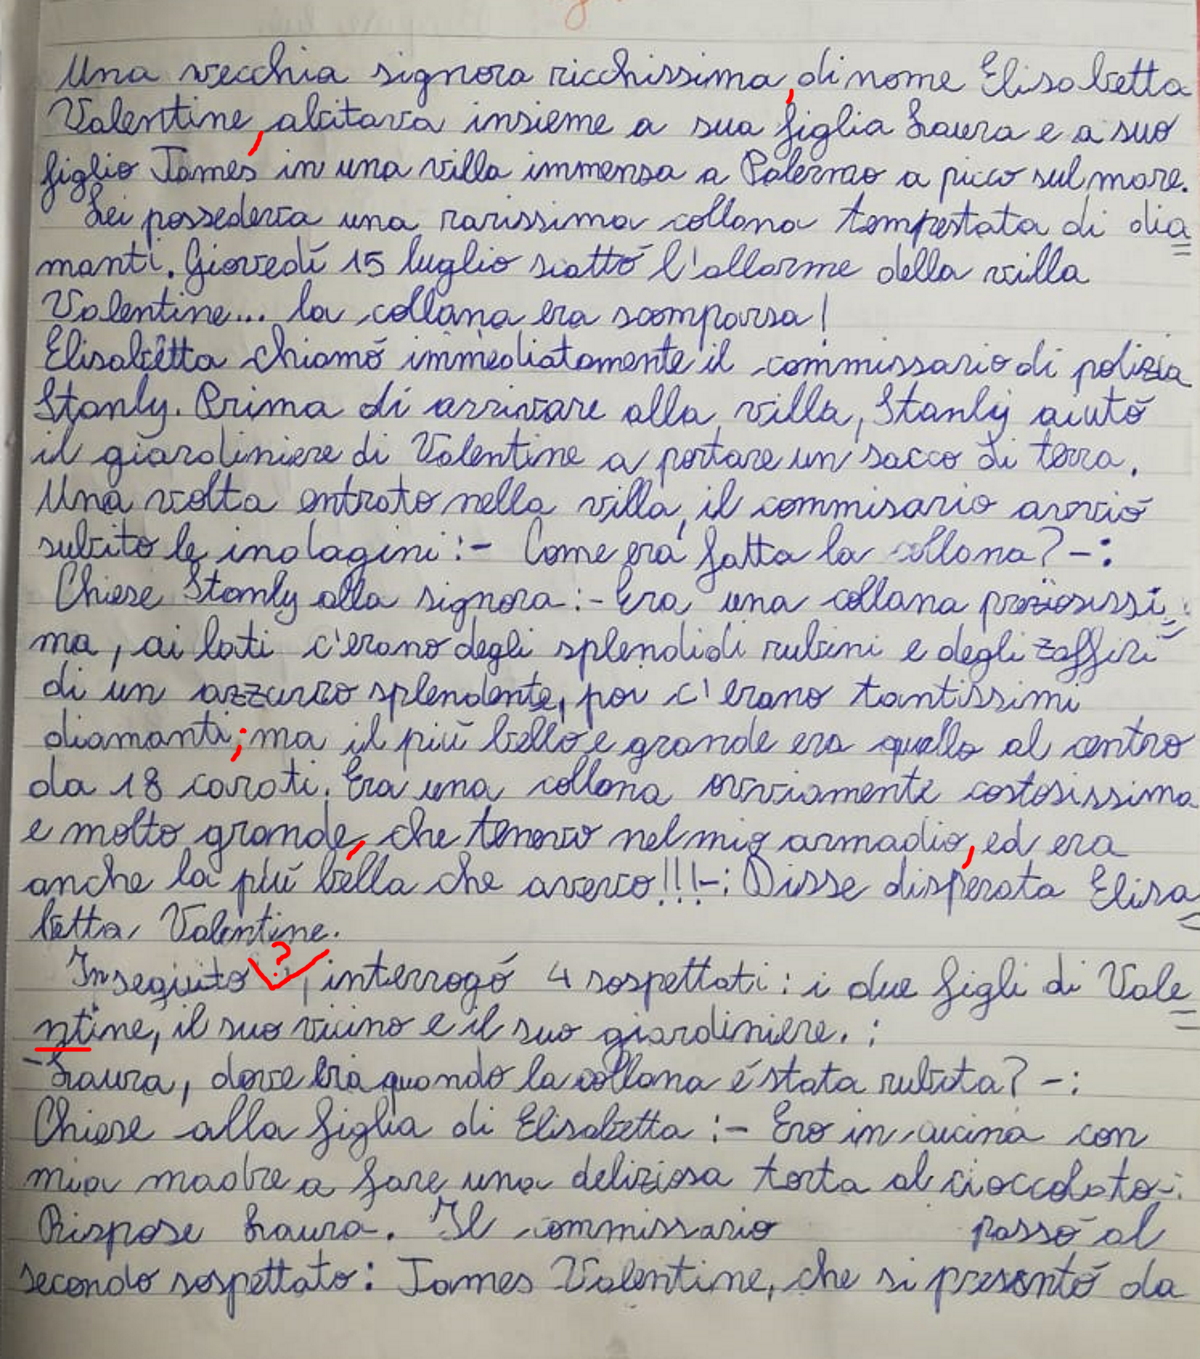 Una vecchia signora ricchissima, di nome Elisabetta
Valentine, abitava insieme a sua figlia Laura e a suo
figlio James in una villa immensa a Palermo a picco sul mare.
Lei possedeva una rarissima collana tempestata di dia
manti. Giovedì 15 luglio scattò l'allarme della villa
Valentine... la collana era scomparsa!
Elisabetta chiamò immediatamente il commissario di polizia
Stanly. Prima di arrivare alla villa, Stanly aiutò
il giardiniere di Valentine a portare un sacco di terra.
Una volta entrato nella villa, il commisario avviò
subito le indagini :- Come era fatta la collana? -:
Chiese Stanly alla signora :- Era una collana preziosissi
ma, ai lati c'erano degli splendidi rubini e degli zaffiri
di un azzurro splendente, poi c'erano tantissimi
diamanti; ma il più bello e grande era quello al centro
da 18 carati. Era una collana ovviamente costosissima
e molto grande, che tenevo nel mio armadio, ed era
anche la più bella che avevo!!!-: Disse disperata Elisa
betta Valentine.
In seguito ?, interrogò 4 sospettati: i due figli di Vale
ntine, il suo vicino e il suo giardiniere. :
-Laura, dove eri quando la collana é stata rubata? -:
Chiese alla figlia di Elisabetta :- Ero in cucina con
mia madre a fare una deliziosa torta al cioccolato-:
Rispose Laura. Il commissario passò al
secondo sospettato: James Valentine, che si presentò da